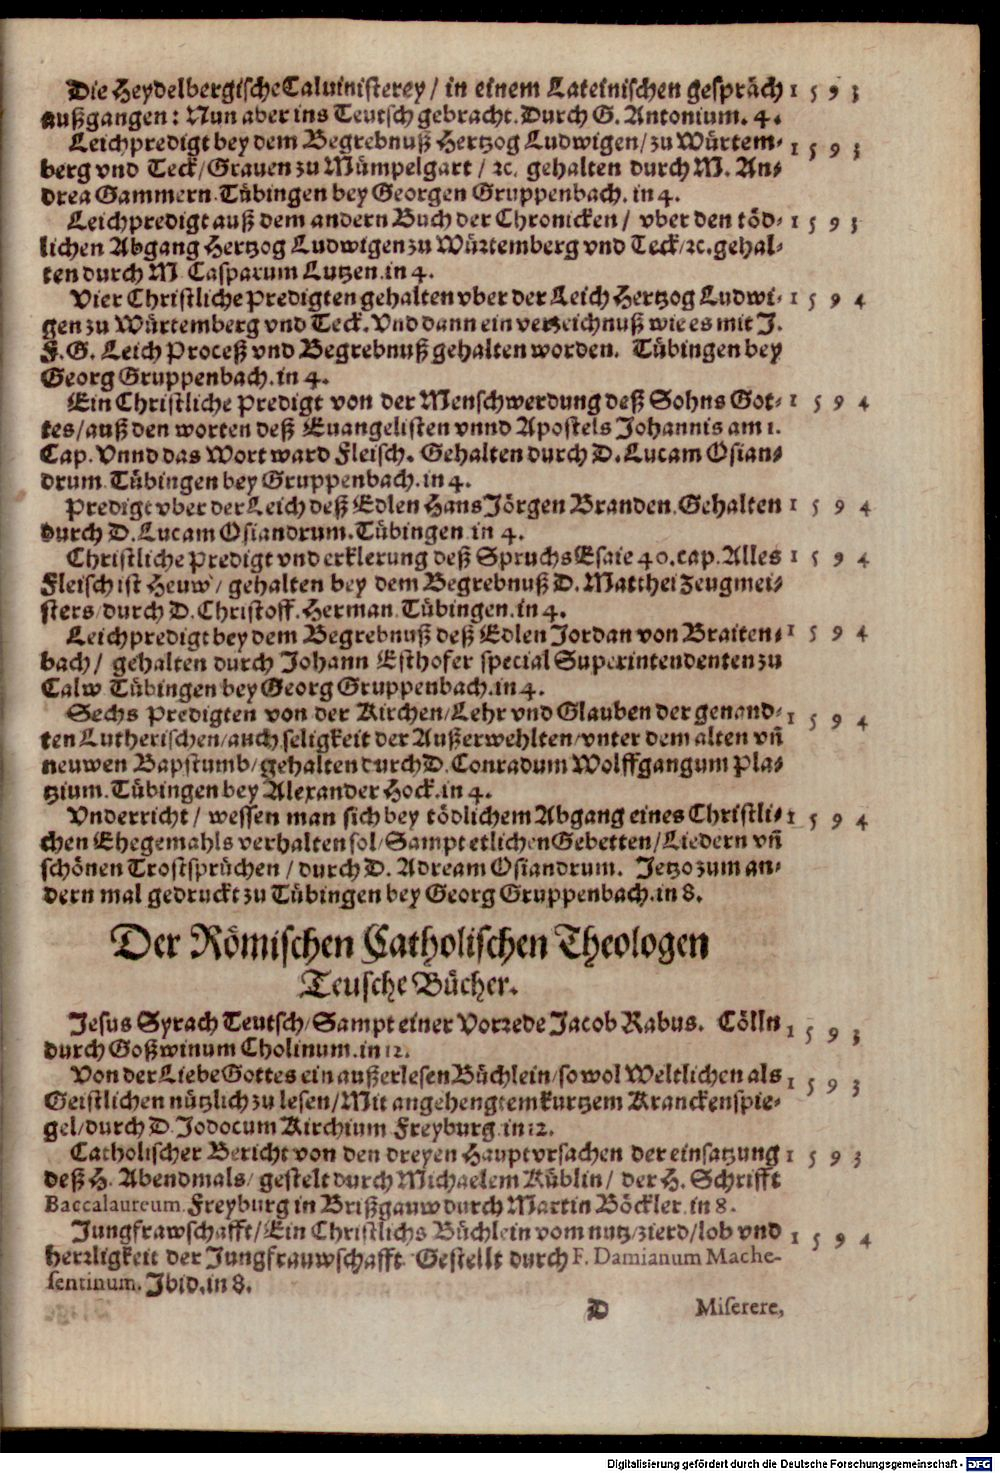 Die Heydelbergische Caluinisterey / in einem Lateinischen gespräch 1593
außgangen: Nun aber ins Teutsch gebracht. Durch G. Antonium. 4.
Leichpredigt bey dem Begrebnuß Hertzog Ludwigen / zu Würtem- 1593
berg vnd Teck / Grauen zu Mümpelgart / ꝛc. gehalten durch M. An-
drea Gammern. Tübingen bey Georgen Gruppenbach. in 4.
Leichpredigt auß dem andern Buch der Chronicken / vber den töd- 1593
lichen Abgang Hertzog Ludwigen zu Würtemberg vnd Teck / ꝛc. gehal-
ten durch M. Casparum Lutzen. in 4.
Vier Christliche Predigten gehalten vber der Leich Hertzog Ludwi- 1594
gen zu Würtemberg vnd Teck. Vnd dann ein verzeichnuß wie es mit J.
F. G. Leich Proceß vnd Begrebnuß gehalten worden. Tübingen bey
Georg Gruppenbach. in 4.
Ein Christliche Predigt von der Menschwerdung deß Sohns Got- 1594
tes / auß den worten deß Euangelisten vnnd Apostels Johannis am 1.
Cap. Vnnd das Wort ward Fleisch. Gehalten durch D. Lucam Osian-
drum. Tübingen bey Gruppenbach. in 4.
Predigt vber der Leich deß Edlen Hans Jörgen Branden. Gehalten 1594
durch D. Lucam Osiandrum. Tübingen in 4.
Christliche Predigt vnd erklerung deß Spruchs Esaie 40. cap. Alles 1594
Fleisch ist Heuw / gehalten bey dem Begrebnuß D. Matthei Zeugmei-
sters / durch D. Christoff. Herman. Tübingen. in 4.
Leichpredigt bey dem Begrebnuß deß Edlen Jordan von Braiten- 1594
bach / gehalten durch Johann Esthofer special Superintendenten zu
Calw. Tübingen bey Georg Gruppenbach. in 4.
Sechs Predigten von der Kirchen / Lehr vnd Glauben der genand- 1594
ten Lutherischen / auch seligkeit der Außerwehlten / vnter dem alten vñ
neuwen Bapstumb / gehalten durch D. Conradum Wolffgangum Pla-
tzium. Tübingen bey Alexander Hock. in 4.
Vnderricht / wessen man sich bey tödlichem Abgang eines Christli- 1594
chen Ehegemahls verhalten sol / Sampt etlichen Gebetten / Liedern vñ
schönen Trostsprüchen / durch D. Adream Osiandrum. Jetzo zum an-
dern mal gedruckt zu Tübingen bey Georg Gruppenbach. in 8.
Der Römischen Catholischen Theologen
Teusche Bücher.
Jesus Syrach Teutsch / Sampt einer Vorrede Jacob Rabus. Cölln 1593
durch Goßwinum Cholinum. in 12.
Von der Liebe Gottes ein außerlesen Büchlein / so wol Weltlichen als 1593
Geistlichen nützlich zu lesen / Mit angehengtem kurtzem Kranckenspie-
gel / durch D. Jodocum Kirchium Freyburg. in 12.
Catholischer Bericht von den dreyen Hauptvrsachen der einsatzung 1593
deß H. Abendmals / gestelt durch Michaelem Küblin / der H. Schrifft
Baccalaureum. Freyburg in Brißgauw durch Martin Böckler. in 8.
Jungfrawschafft / Ein Christlichs Büchlein vom nutz / zierd / lob vnd 1594
herzligkeit der Jungfrauwschafft. Gestellt durch F. Damianum Mache-
sentinum. Ibid. in 8.
D Miserere,
Digitalisierung gefördert durch die Deutsche Forschungsgemeinschaft - DFG